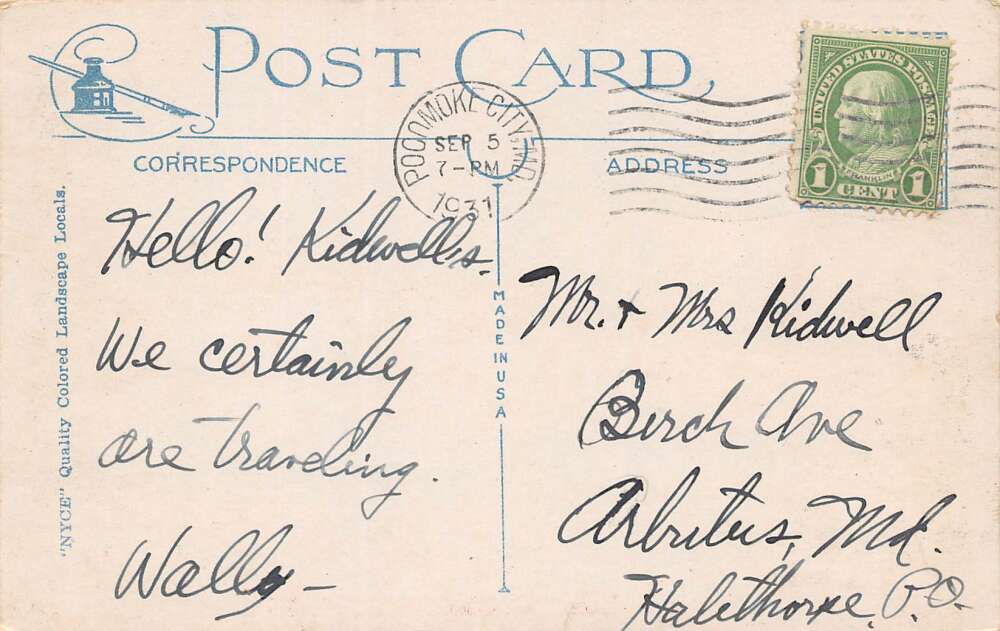 POST CARD
POCOMOKE CITY, MD.
SEP 5
7-PM
1931
UNITED STATES POSTAGE
FRANKLIN
1 CENT 1
CORRESPONDENCE
ADDRESS
Hello! Kidwells.
We certainly
are traveling.
Wally-
Mr. + Mrs Kidwell
Birch Ave
Arbutus, Md.
Halethorpe, P.O.
MADE IN USA
"NYCE" Quality Colored Landscape Locals.